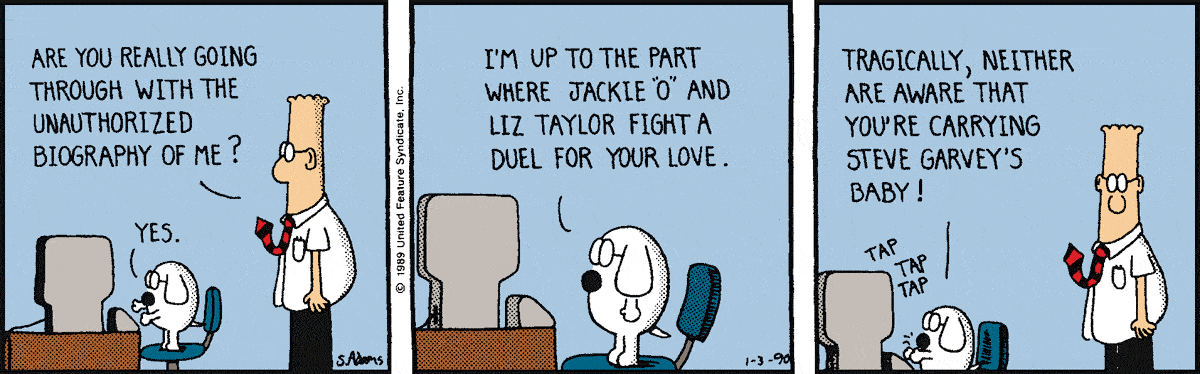 ARE YOU REALLY GOING
THROUGH WITH THE
UNAUTHORIZED
BIOGRAPHY OF ME?
YES.
S.Adams
© 1989 United Feature Syndicate, Inc.
I'M UP TO THE PART
WHERE JACKIE "O" AND
LIZ TAYLOR FIGHT A
DUEL FOR YOUR LOVE.
1-3-90
TRAGICALLY, NEITHER
ARE AWARE THAT
YOU'RE CARRYING
STEVE GARVEY'S
BABY!
TAP
TAP
TAP